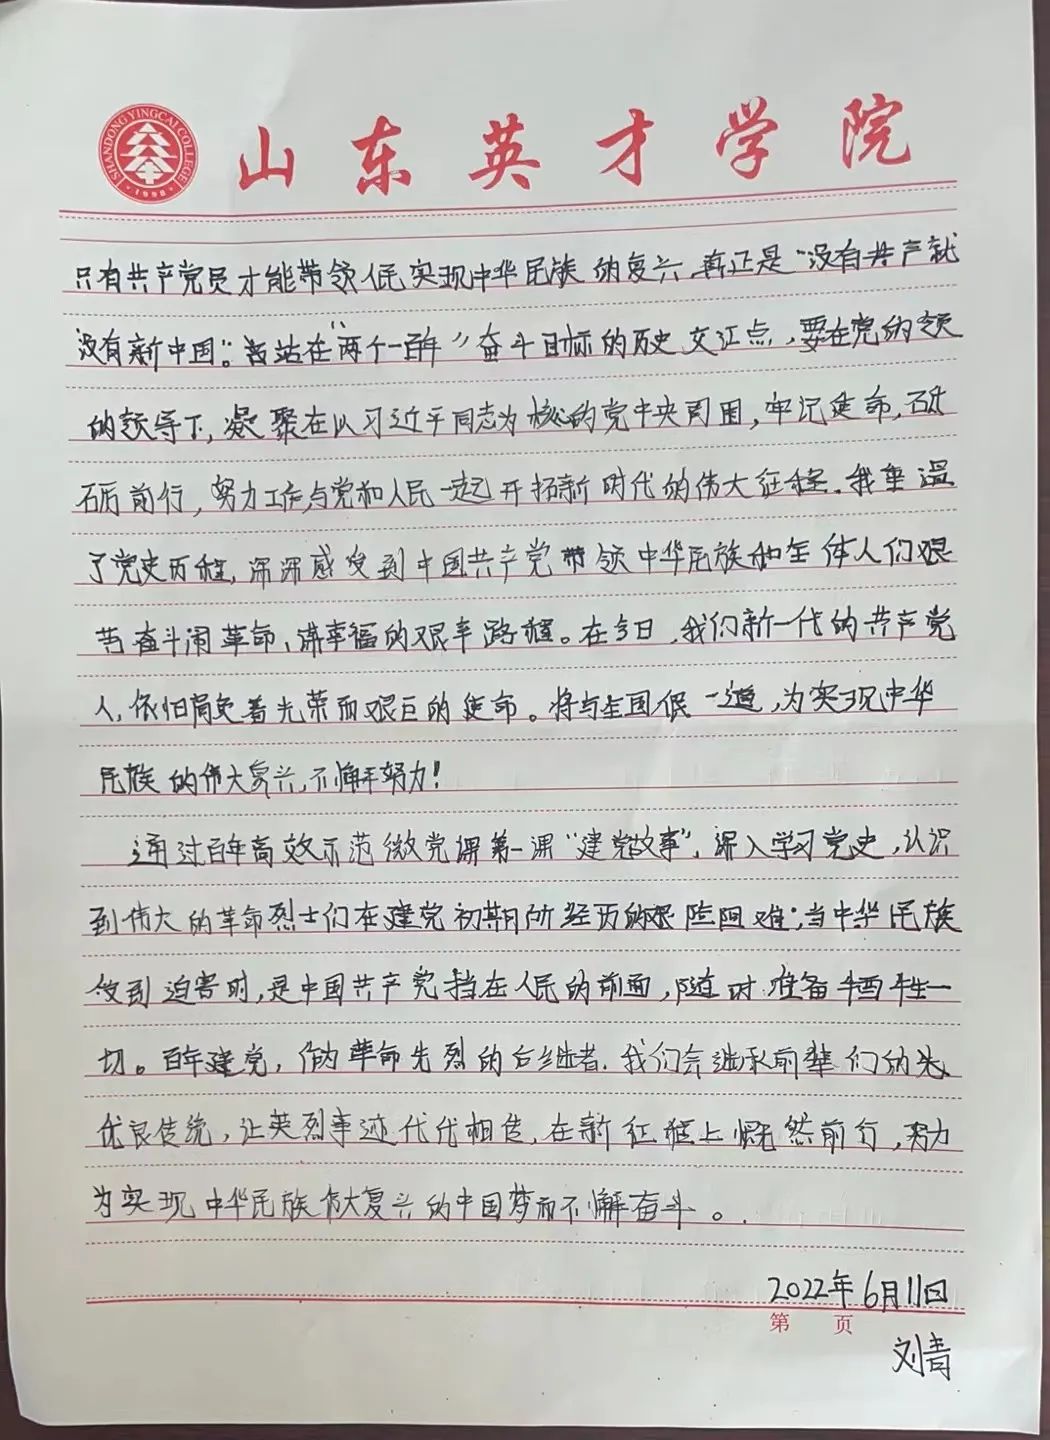 SHANDONG YINGCAI COLLEGE
1998
山东英才学院
只有共产党员才能带领人民实现中华民族的复兴,真正是“没有共产就
没有新中国”。站在“两个一百年”奋斗目标的历史交汇点,要在党的领
的领导下,凝聚在以习近平同志为核心的党中央周围,牢记使命,砥
砺前行,努力工作,与党和人民一起开拓新时代的伟大征程.我重温
了党史历程,深深感受到中国共产党带领中华民族和全体人们艰
苦奋斗闹革命、谋幸福的艰辛路程。在今日,我们新一代的共产党
人,依旧肩负着光荣而艰巨的使命。将与全国人民一道,为实现中华
民族的伟大复兴,不懈努力!
通过百年高效示范微党课第一课“建党故事”,深入学习党史,认识
到伟大的革命烈士们在建党初期所经历的艰险阻难;当中华民族
受到迫害时,是中国共产党挡在人民的前面,随时准备牺牲一
切。百年建党,作为革命先烈的后继者.我们会继承前辈们的
优良传统,让英烈事迹代代相传,在新征程上慨然前行,努力
为实现中华民族伟大复兴的中国梦而不懈奋斗。.
2022年6月11日
第 页
刘青